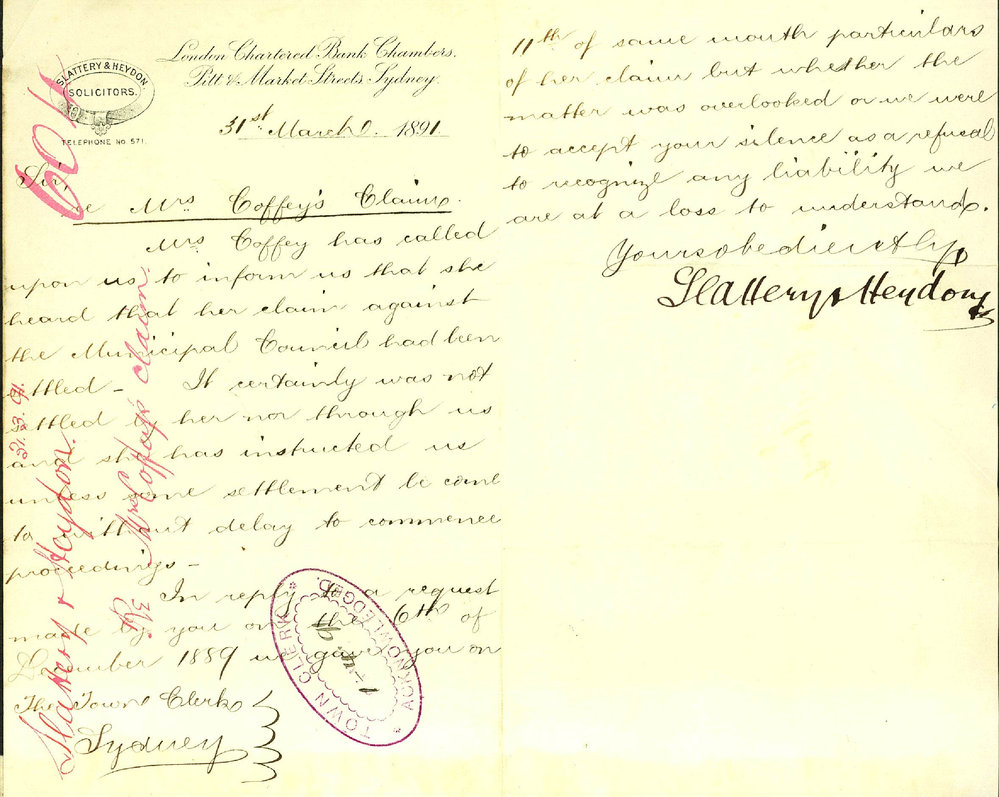 SLATTERY & HEYDON.
SOLICITORS.
TELEPHONE NO. 571.
London Chartered Bank Chambers.
Pitt & Market Streets Sydney.
31st March 1891.
Sir,
re Mrs Coffey's Claim.
Mrs Coffey has called
upon us to inform us that she
heard that her claim against
the Municipal Council had been
settled - It certainly was not
settled by her nor through us
and she has instructed us
unless some settlement be come
to without delay to commence
proceedings -
In reply to a request
made by you on the 6th of
December 1889 we gave you on
The Town Clerk
Sydney
11th of same month particulars
of her claim but whether the
matter was overlooked or we were
to accept your silence as a refusal
to recognize any liability we
are at a loss to understand.
Yours obediently
Slattery & Heydon
31.3.91.
Slattery & Heydon.
Re Mrs Coffey's claim.
TOWN CLERK
ACKNOWLEDGED.